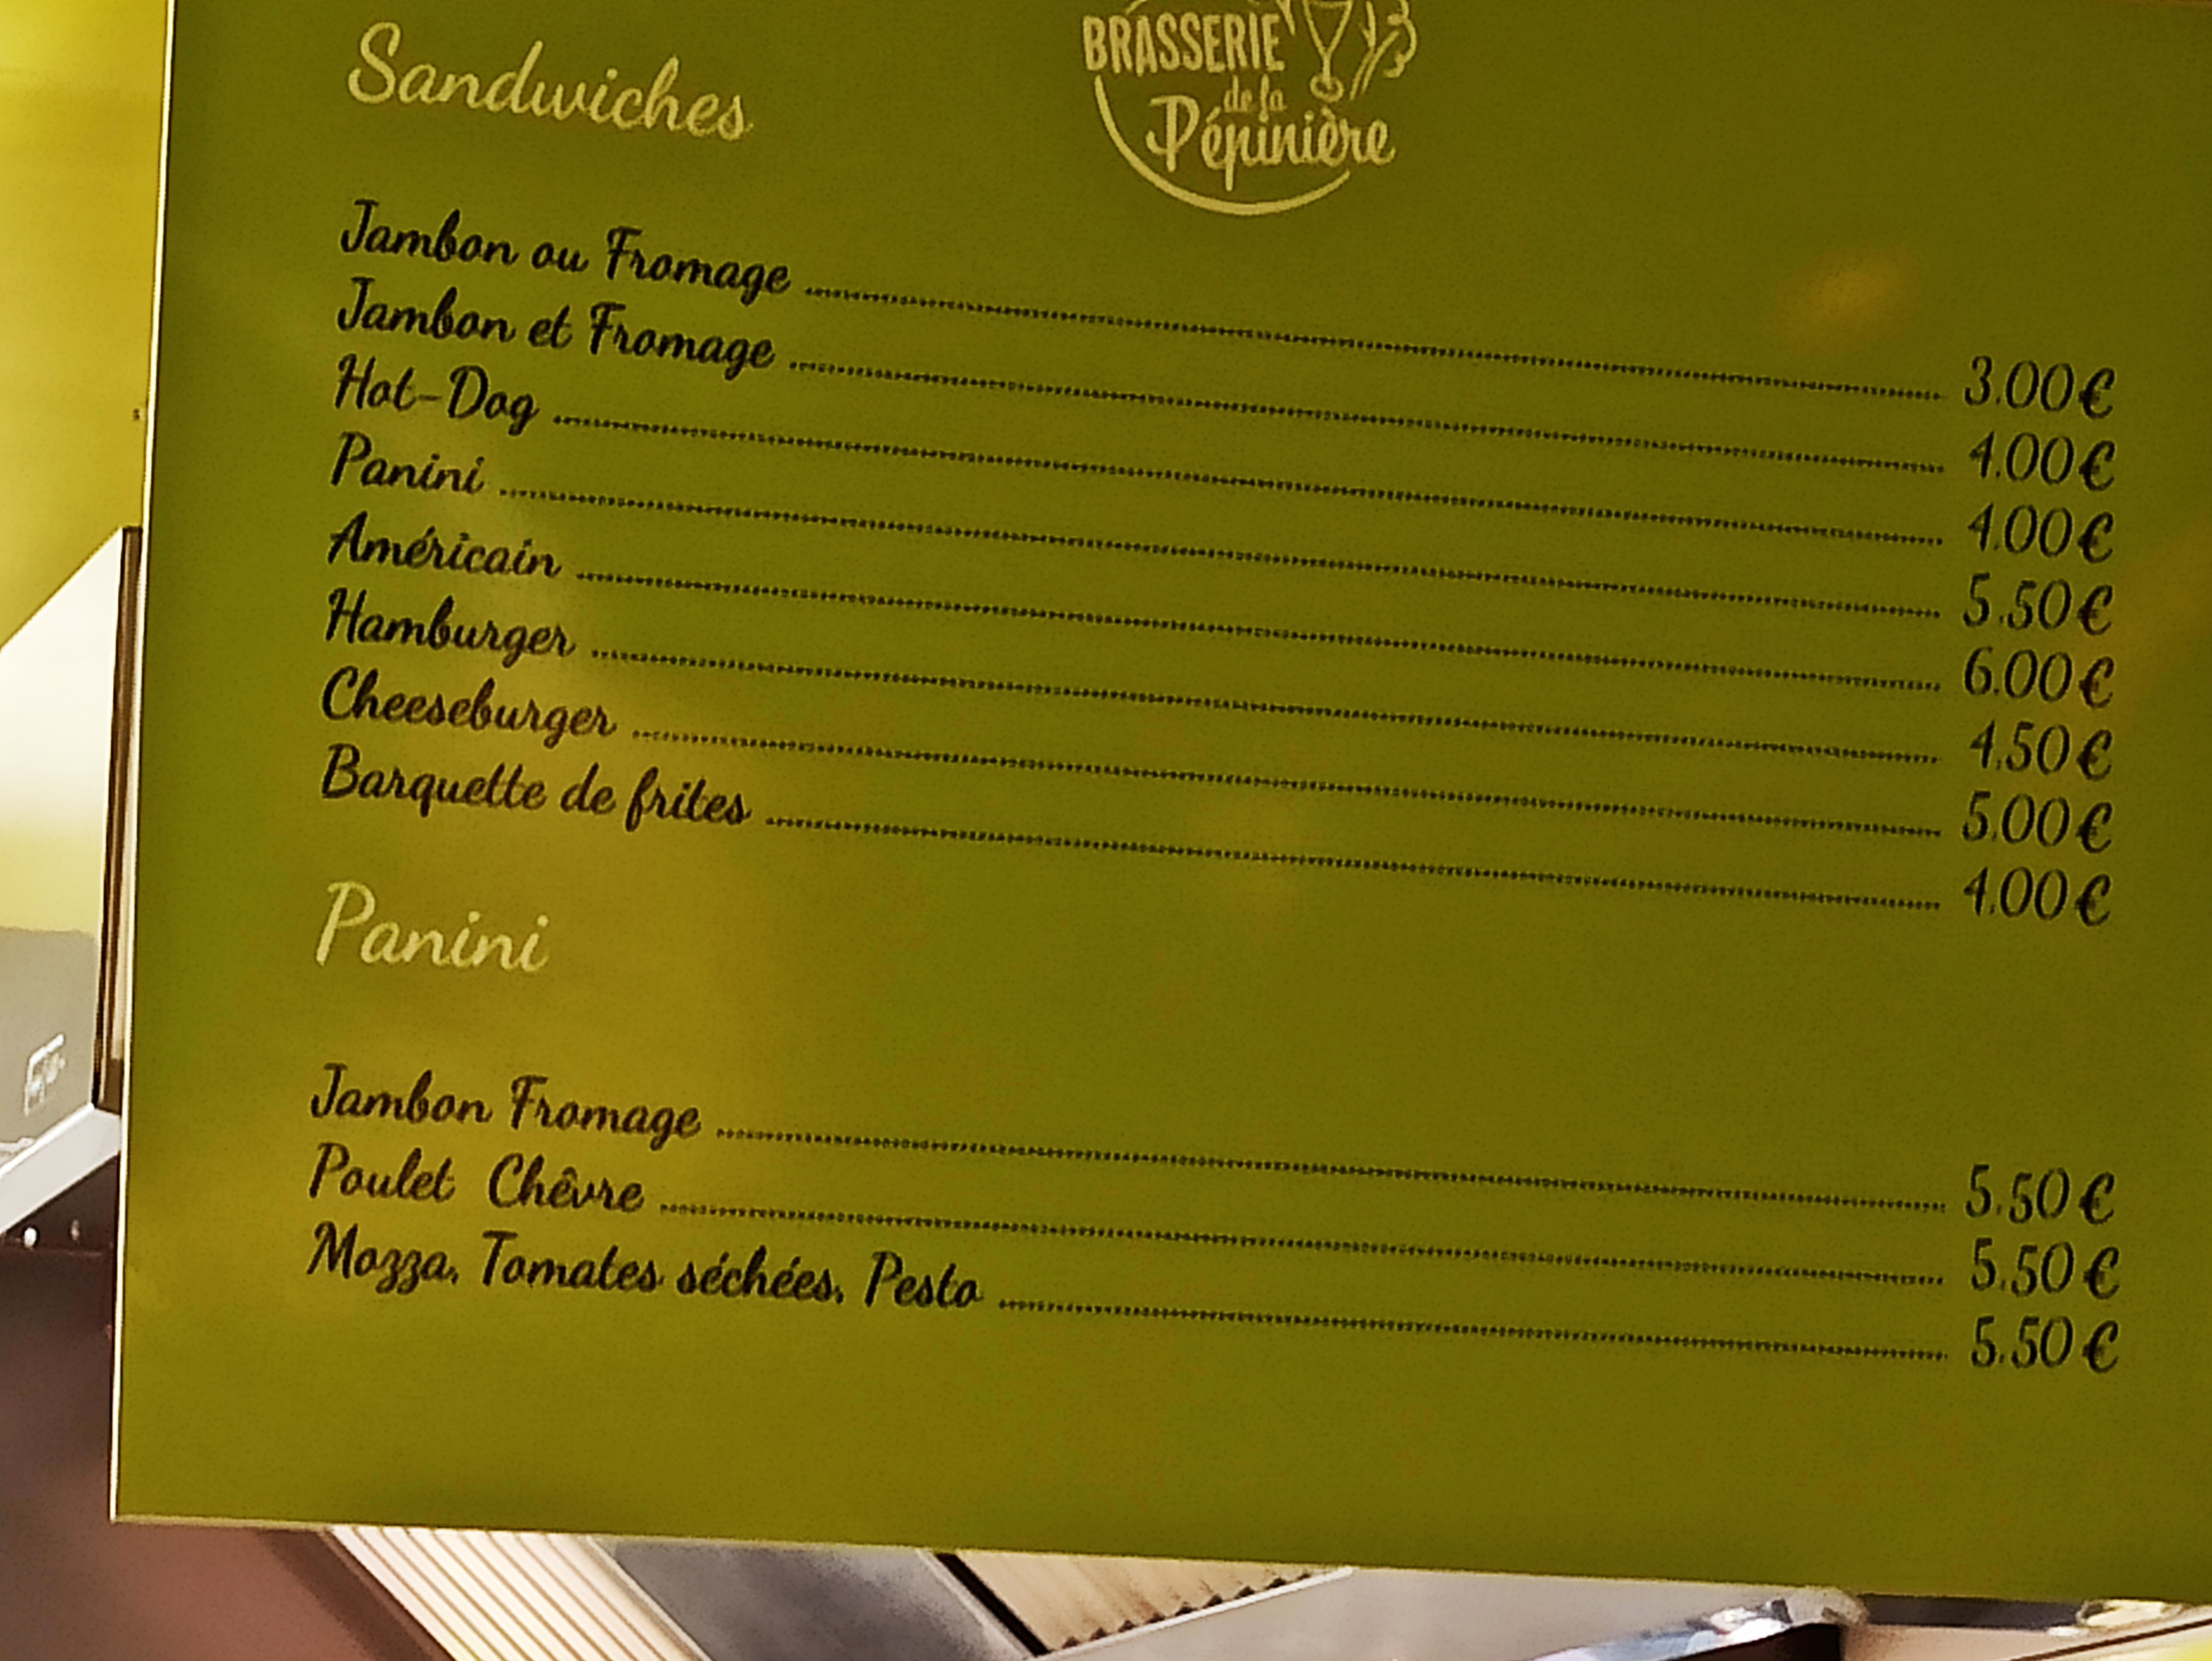 BRASSERIE
de la
Pépinière
Sandwiches
Jambon ou Fromage 3.00€
Jambon et Fromage 4.00€
Hot-Dog 4.00€
Panini 5.50€
Américain 6.00€
Hamburger 4.50€
Cheeseburger 5.00€
Barquette de frites 4.00€
Panini
Jambon Fromage 5.50€
Poulet Chêvre 5.50€
Mozza, Tomates séchées, Pesto 5.50€